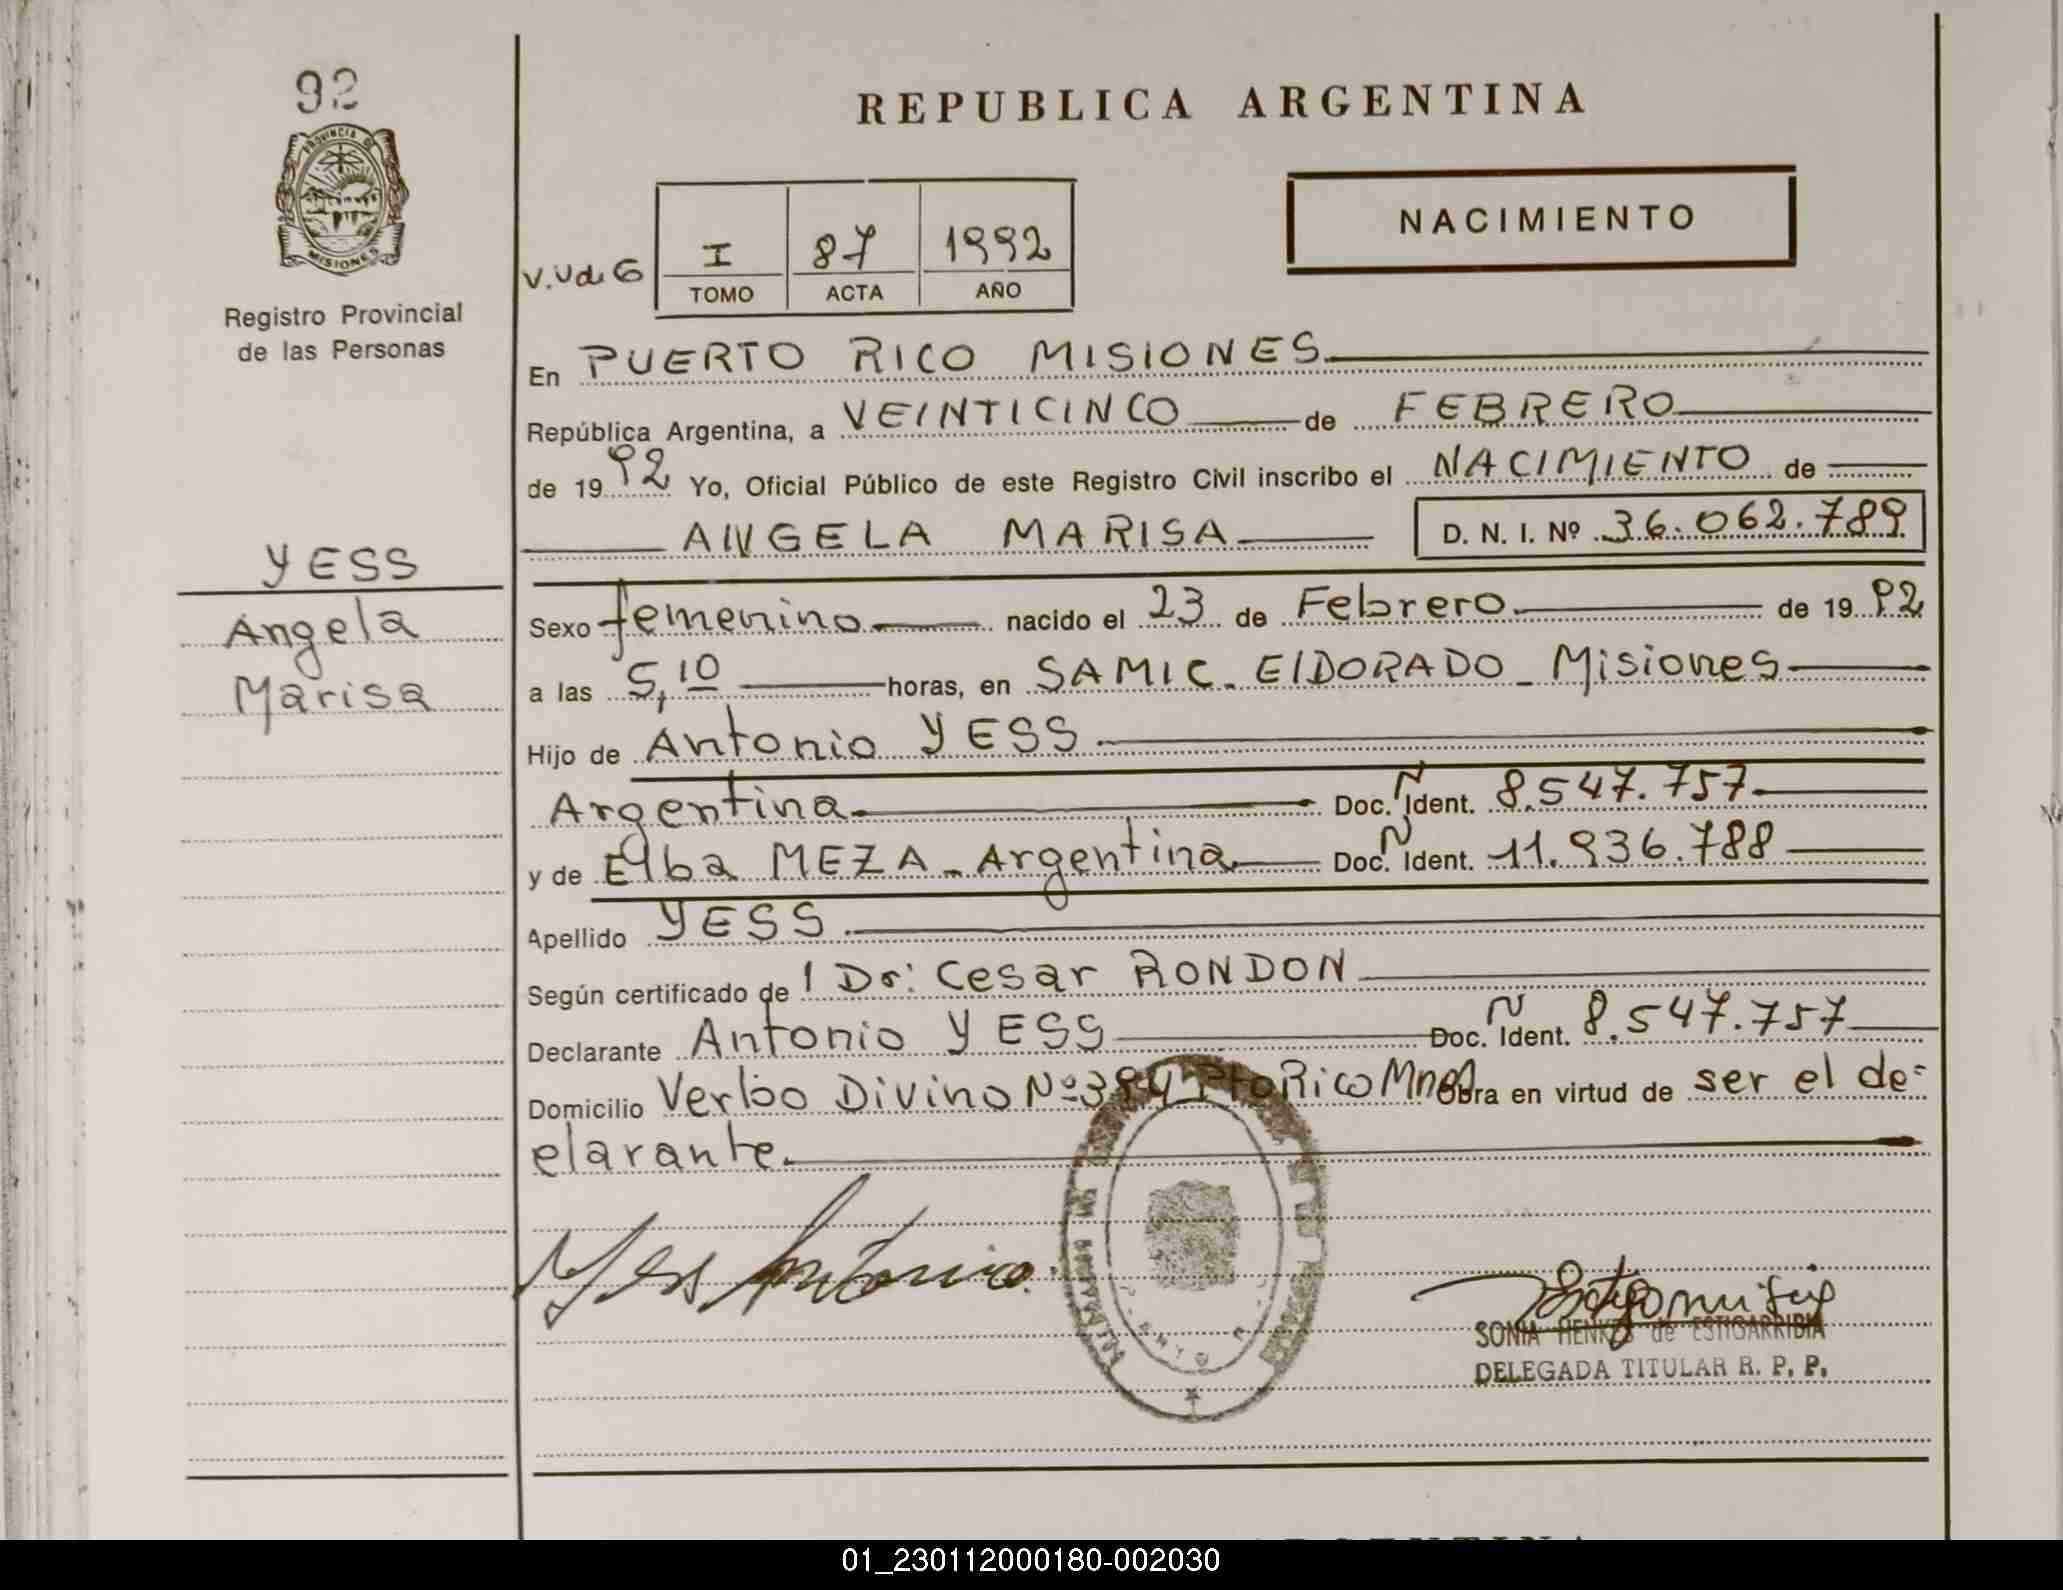 92
PROVINCIA DE
MISIONES
Registro Provincial
de las Personas
YESS
Angela
Marisa
REPUBLICA ARGENTINA
NACIMIENTO
V.Ude G
I 87 1992
TOMO ACTA AÑO
En PUERTO RICO MISIONES
República Argentina, a VEINTICINCO de FEBRERO
de 1992 Yo, Oficial Público de este Registro Civil inscribo el NACIMIENTO de
ANGELA MARISA D. N. I. Nº 36.062.789
Sexo femenino nacido el 23 de Febrero de 1992
a las 5,10 horas, en SAMIC - ElDORADO - Misiones
Hijo de Antonio YESS
Argentina Doc. Ñ Ident. 8.547.757
y de Elba MEZA - Argentina Doc. Ñ Ident. 11.936.788
Apellido YESS
Según certificado de 1 Dr: Cesar RONDON
Declarante Antonio YESS Doc. Ñ Ident. 8.547.757
Domicilio Verbo Divino Nº 394 Pto Rico Mnes Obra en virtud de ser el de-
clarante.
Yess Antonio.
SONIA HENKES de ESTIGARRIBIA
DELEGADA TITULAR R. P. P.
01_230112000180-002030